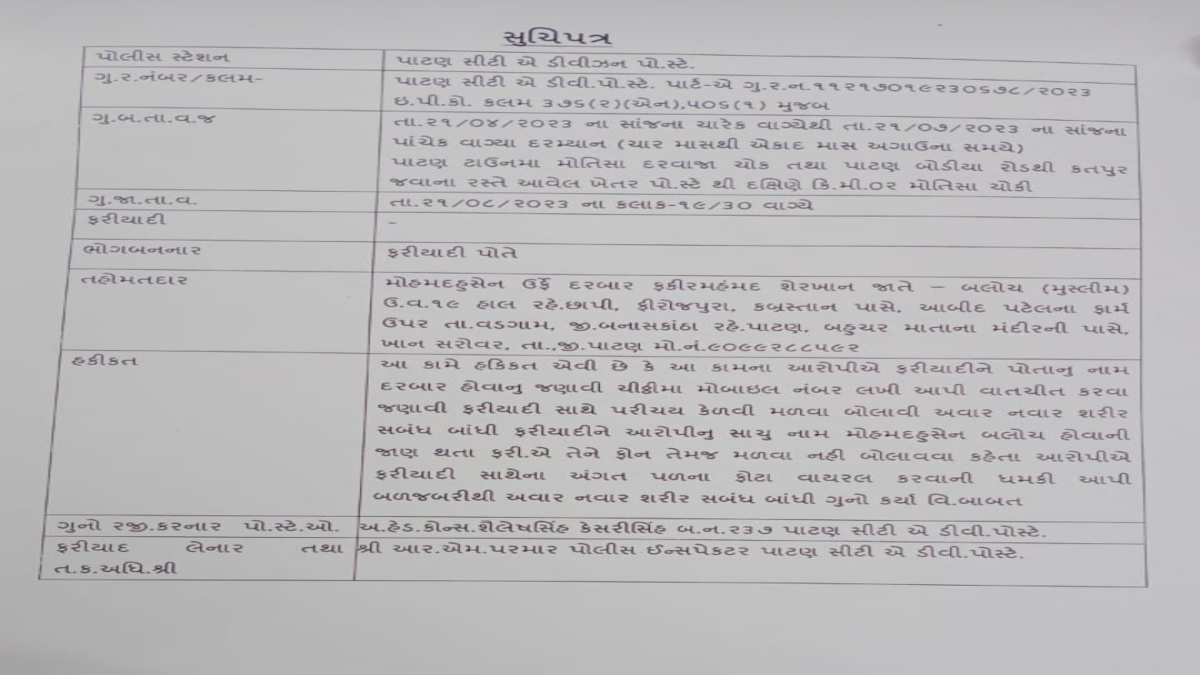 સુચિપત્ર
પોલીસ સ્ટેશન
પાટણ સીટી એ ડીવીઝન પો.સ્ટે.
ગુ.ર.નંબર/કલમ-
પાટણ સીટી એ ડીવી.પો.સ્ટે. પાર્ટ-એ ગુ.ર.ન.૧૧૨૧૭૦૧૯૨૩૦૬૭૮/૨૦૨૩
ઇ.પી.કો. કલમ ૩૭૬(૨)(એન),૫૦૬(૧) મુજબ
ગુ.બ.તા.વ.જ
તા.૨૧/૦૪/૨૦૨૩ ના સાંજના ચારેક વાગ્યેથી તા.૨૧/૦૭/૨૦૨૩ ના સાંજના
પાંચેક વાગ્યા દરમ્યાન (ચાર માસથી એકાદ માસ અગાઉના સમયે)
પાટણ ટાઉનમા મોતિસા દરવાજા ચોક તથા પાટણ બોડીયા રોડથી કતપુર
જવાના રસ્તે આવેલ ખેતર પો.સ્ટે થી દક્ષિણે કિ.મી.૦૨ મોતિસા ચોકી
ગુ.જા.તા.વ.
તા.૨૧/૦૮/૨૦૨૩ ના કલાક-૧૯/૩૦ વાગ્યે
ફરીયાદી
-
ભોગબનનાર
ફરીયાદી પોતે
તહોમતદાર
મોહમદહુસેન ઉર્ફે દરબાર ફકીરમહંમદ શેરખાન જાતે – બલોચ (મુસ્લીમ)
ઉ.વ.૧૯ હાલ રહે.છાપી, ફીરોજપુરા, કબ્રસ્તાન પાસે, આબીદ પટેલના ફાર્મ
ઉપર તા.વડગામ, જી.બનાસકાંઠા રહે.પાટણ, બહુચર માતાના મંદીરની પાસે,
ખાન સરોવર, તા.,જી.પાટણ મો.નં.૯૦૯૯૨૮૮૫૯૨
હકીકત
આ કામે હકિકત એવી છે કે આ કામના આરોપીએ ફરીયાદીને પોતાનુ નામ
દરબાર હોવાનુ જણાવી ચીઠ્ઠીમા મોબાઇલ નંબર લખી આપી વાતચીત કરવા
જણાવી ફરીયાદી સાથે પરીચય કેળવી મળવા બોલાવી અવાર નવાર શરીર
સબંધ બાંધી ફરીયાદીને આરોપીનુ સાચુ નામ મોહમદહુસેન બલોચ હોવાની
જાણ થતા ફરી.એ તેને ફોન તેમજ મળવા નહી બોલાવવા કહેતા આરોપીએ
ફરીયાદી સાથેના અંગત પળના ફોટા વાયરલ કરવાની ધમકી આપી
બળજબરીથી અવાર નવાર શરીર સબંધ બાંધી ગુનો કર્યા વિ.બાબત
ગુનો રજી.કરનાર પો.સ્ટે.ઓ.
અ.હેડ.કોન્સ.શૈલેષસિંહ કેસરીસિંહ બ.ન.૨૩૭ પાટણ સીટી એ ડીવી.પોસ્ટે.
ફરીયાદ લેનાર તથા
શ્રી આર.એમ.પરમાર પોલીસ ઈન્સપેકટર પાટણ સીટી એ ડીવી.પોસ્ટે.
ત.ક.અધિ.શ્રી